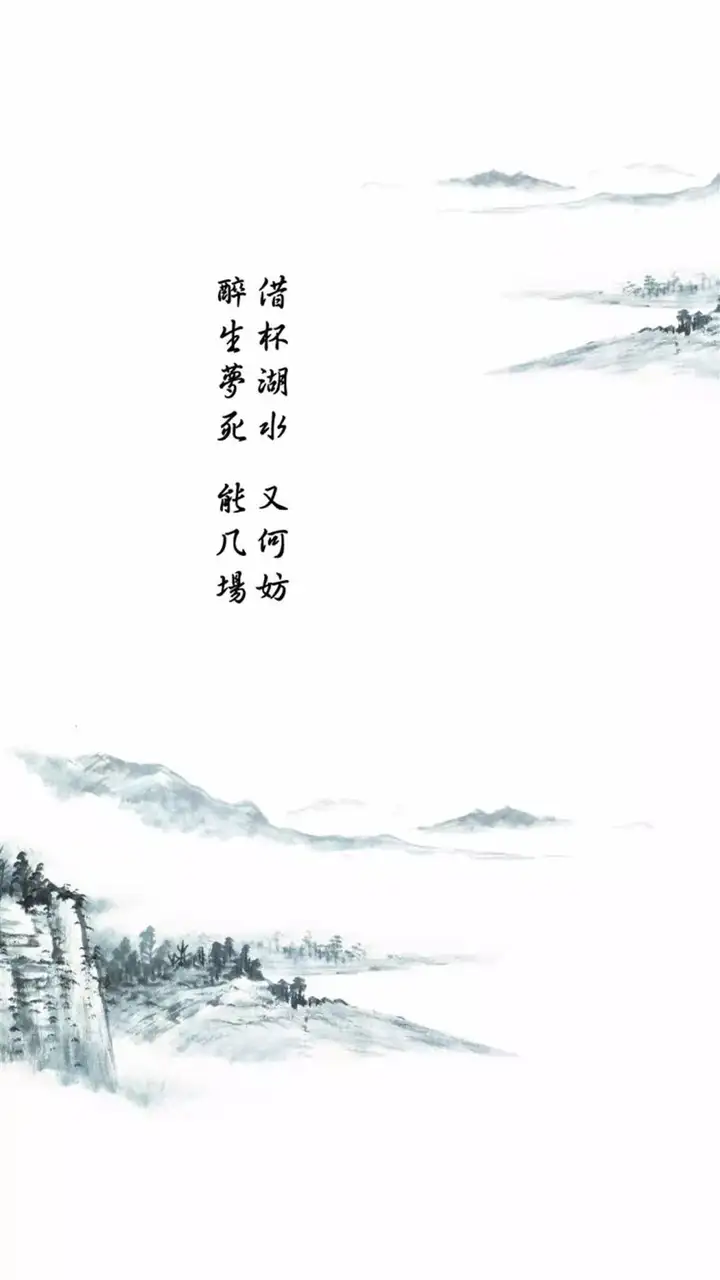 借杯湖水 又何妨
醉生夢死 能几場